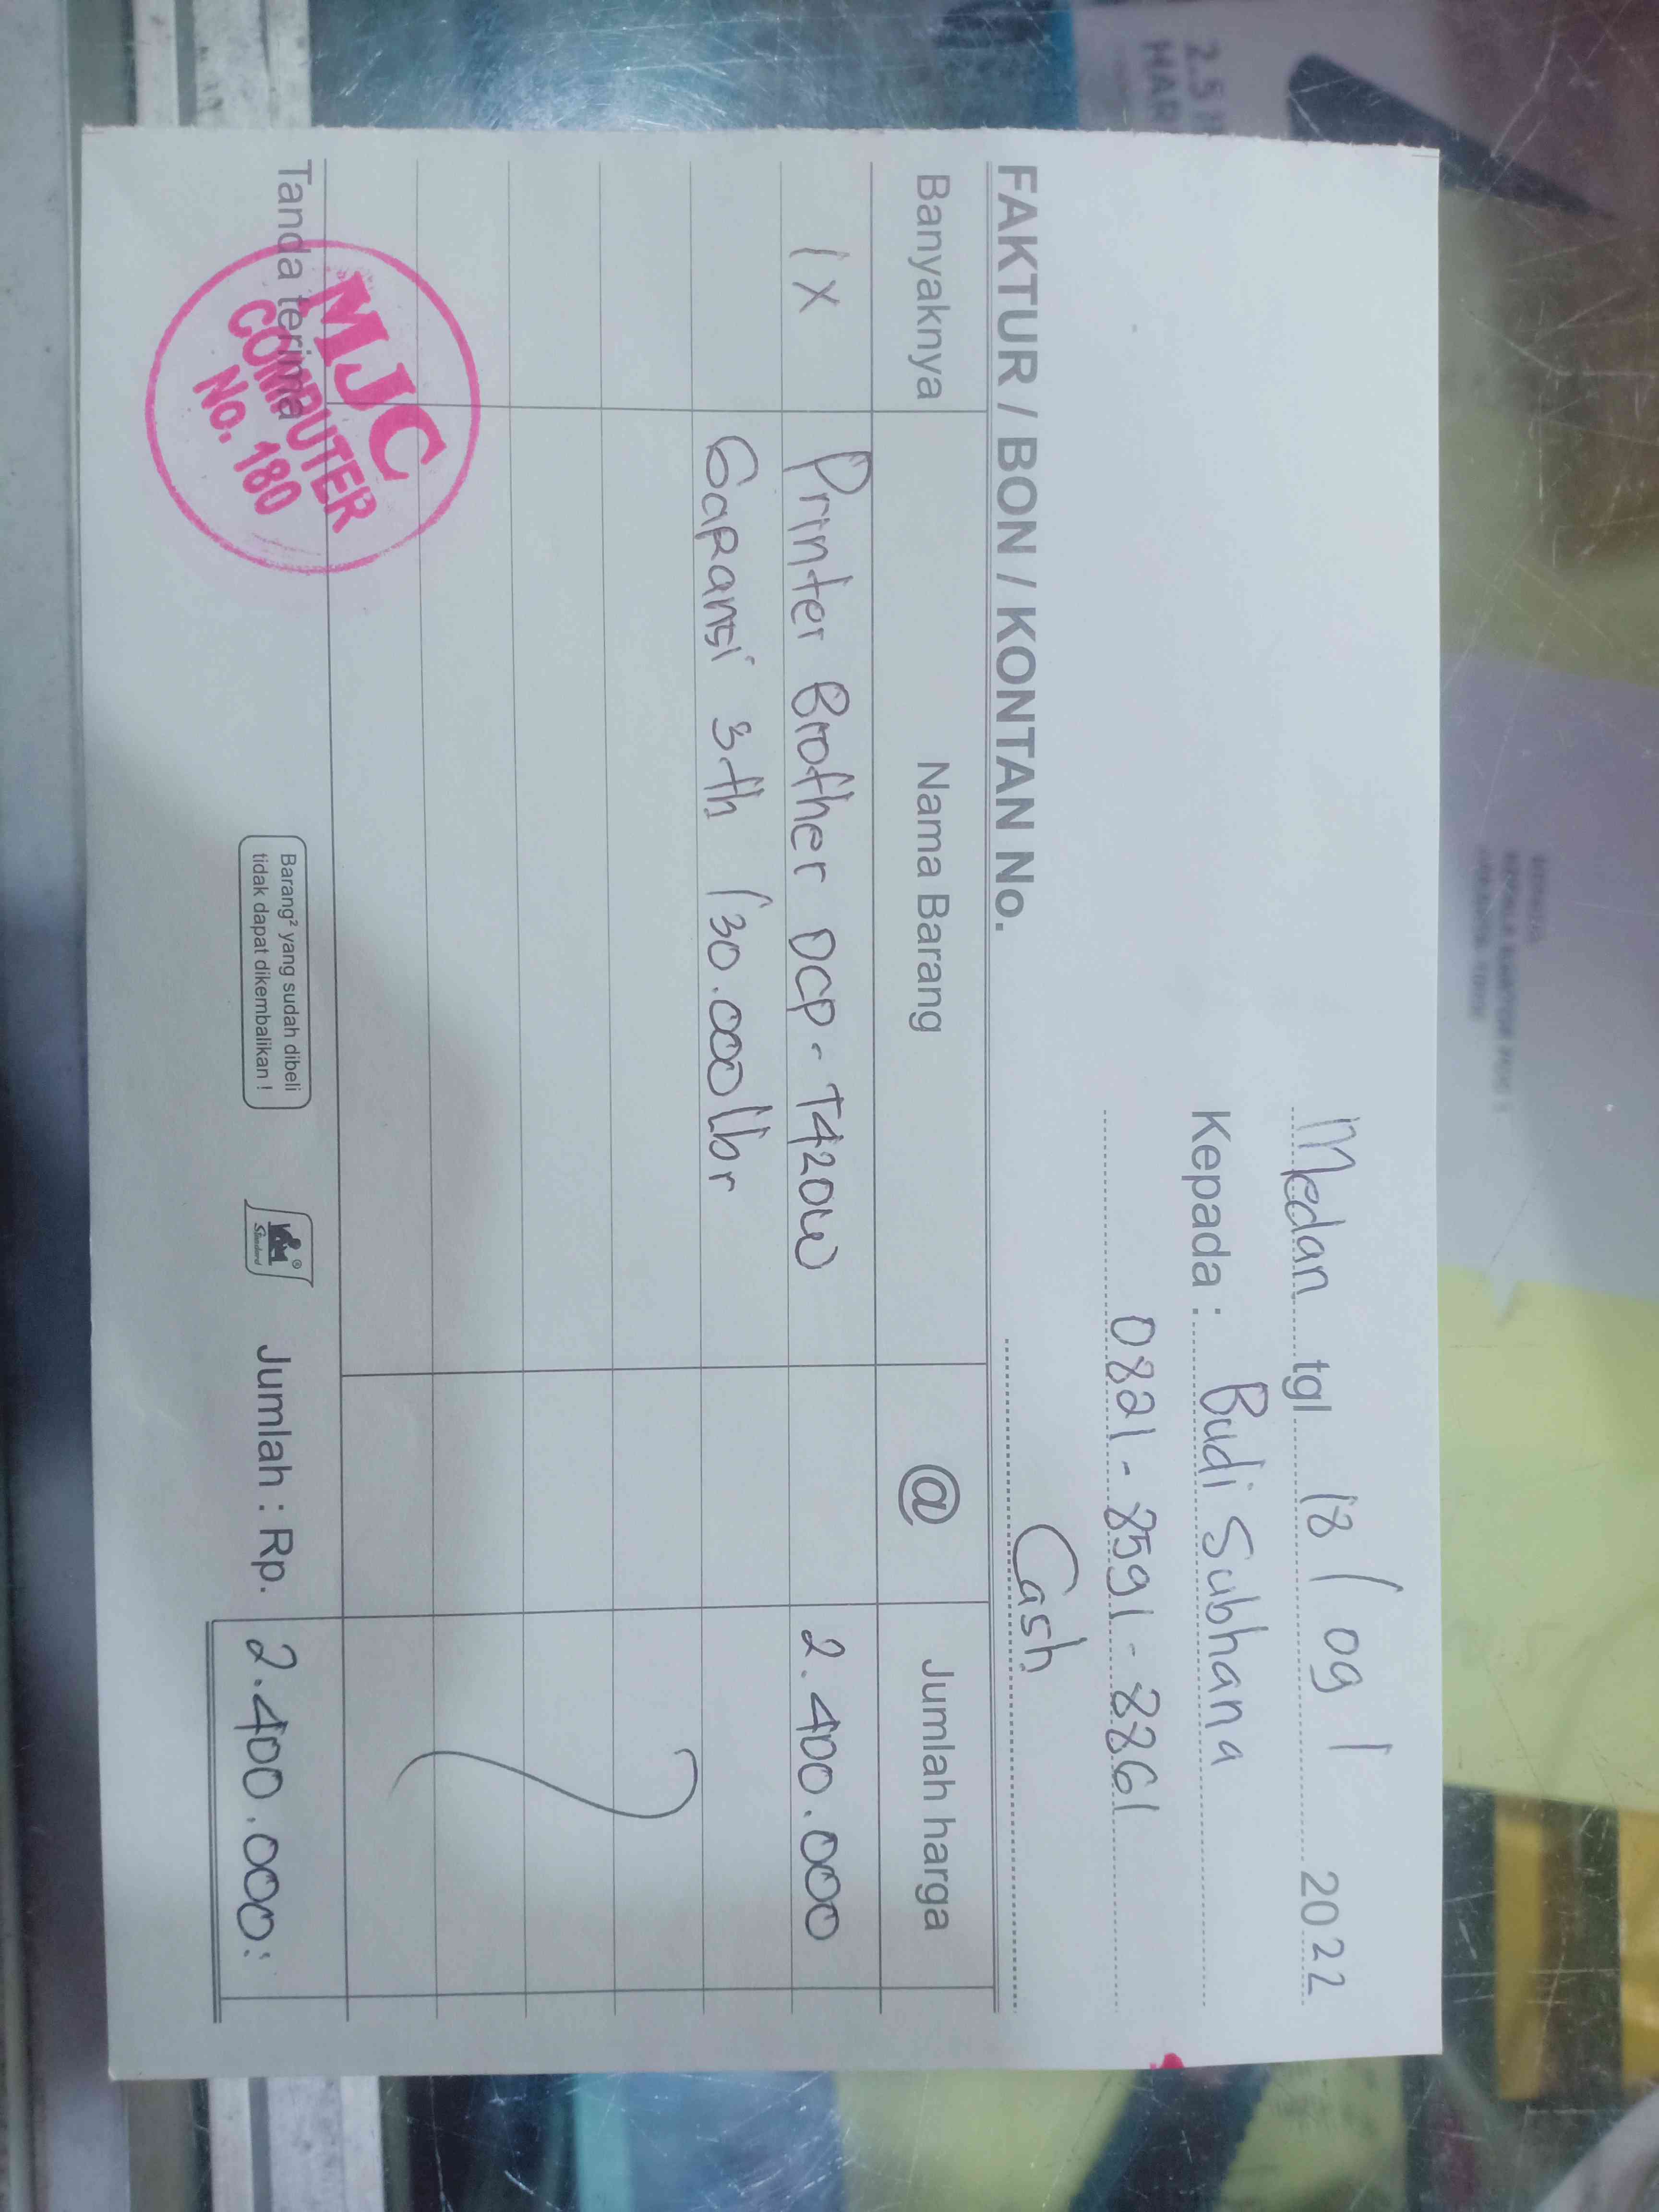 Medan tgl 18 / 09 / 2022
Kepada : Budi Subhana
0821 - 8591 - 8861
FAKTUR / BON / KONTAN No. Cash
Banyaknya Nama Barang @ Jumlah harga
1 x Printer Brother DCP - T420W 2.400.000
Garansi 3th / 30.000 lbr
Tanda terima
MJC
COMPUTER
No. 180
Barang² yang sudah dibeli
tidak dapat dikembalikan !
Standard
Jumlah : Rp. 2.400.000:
2.5
HAR